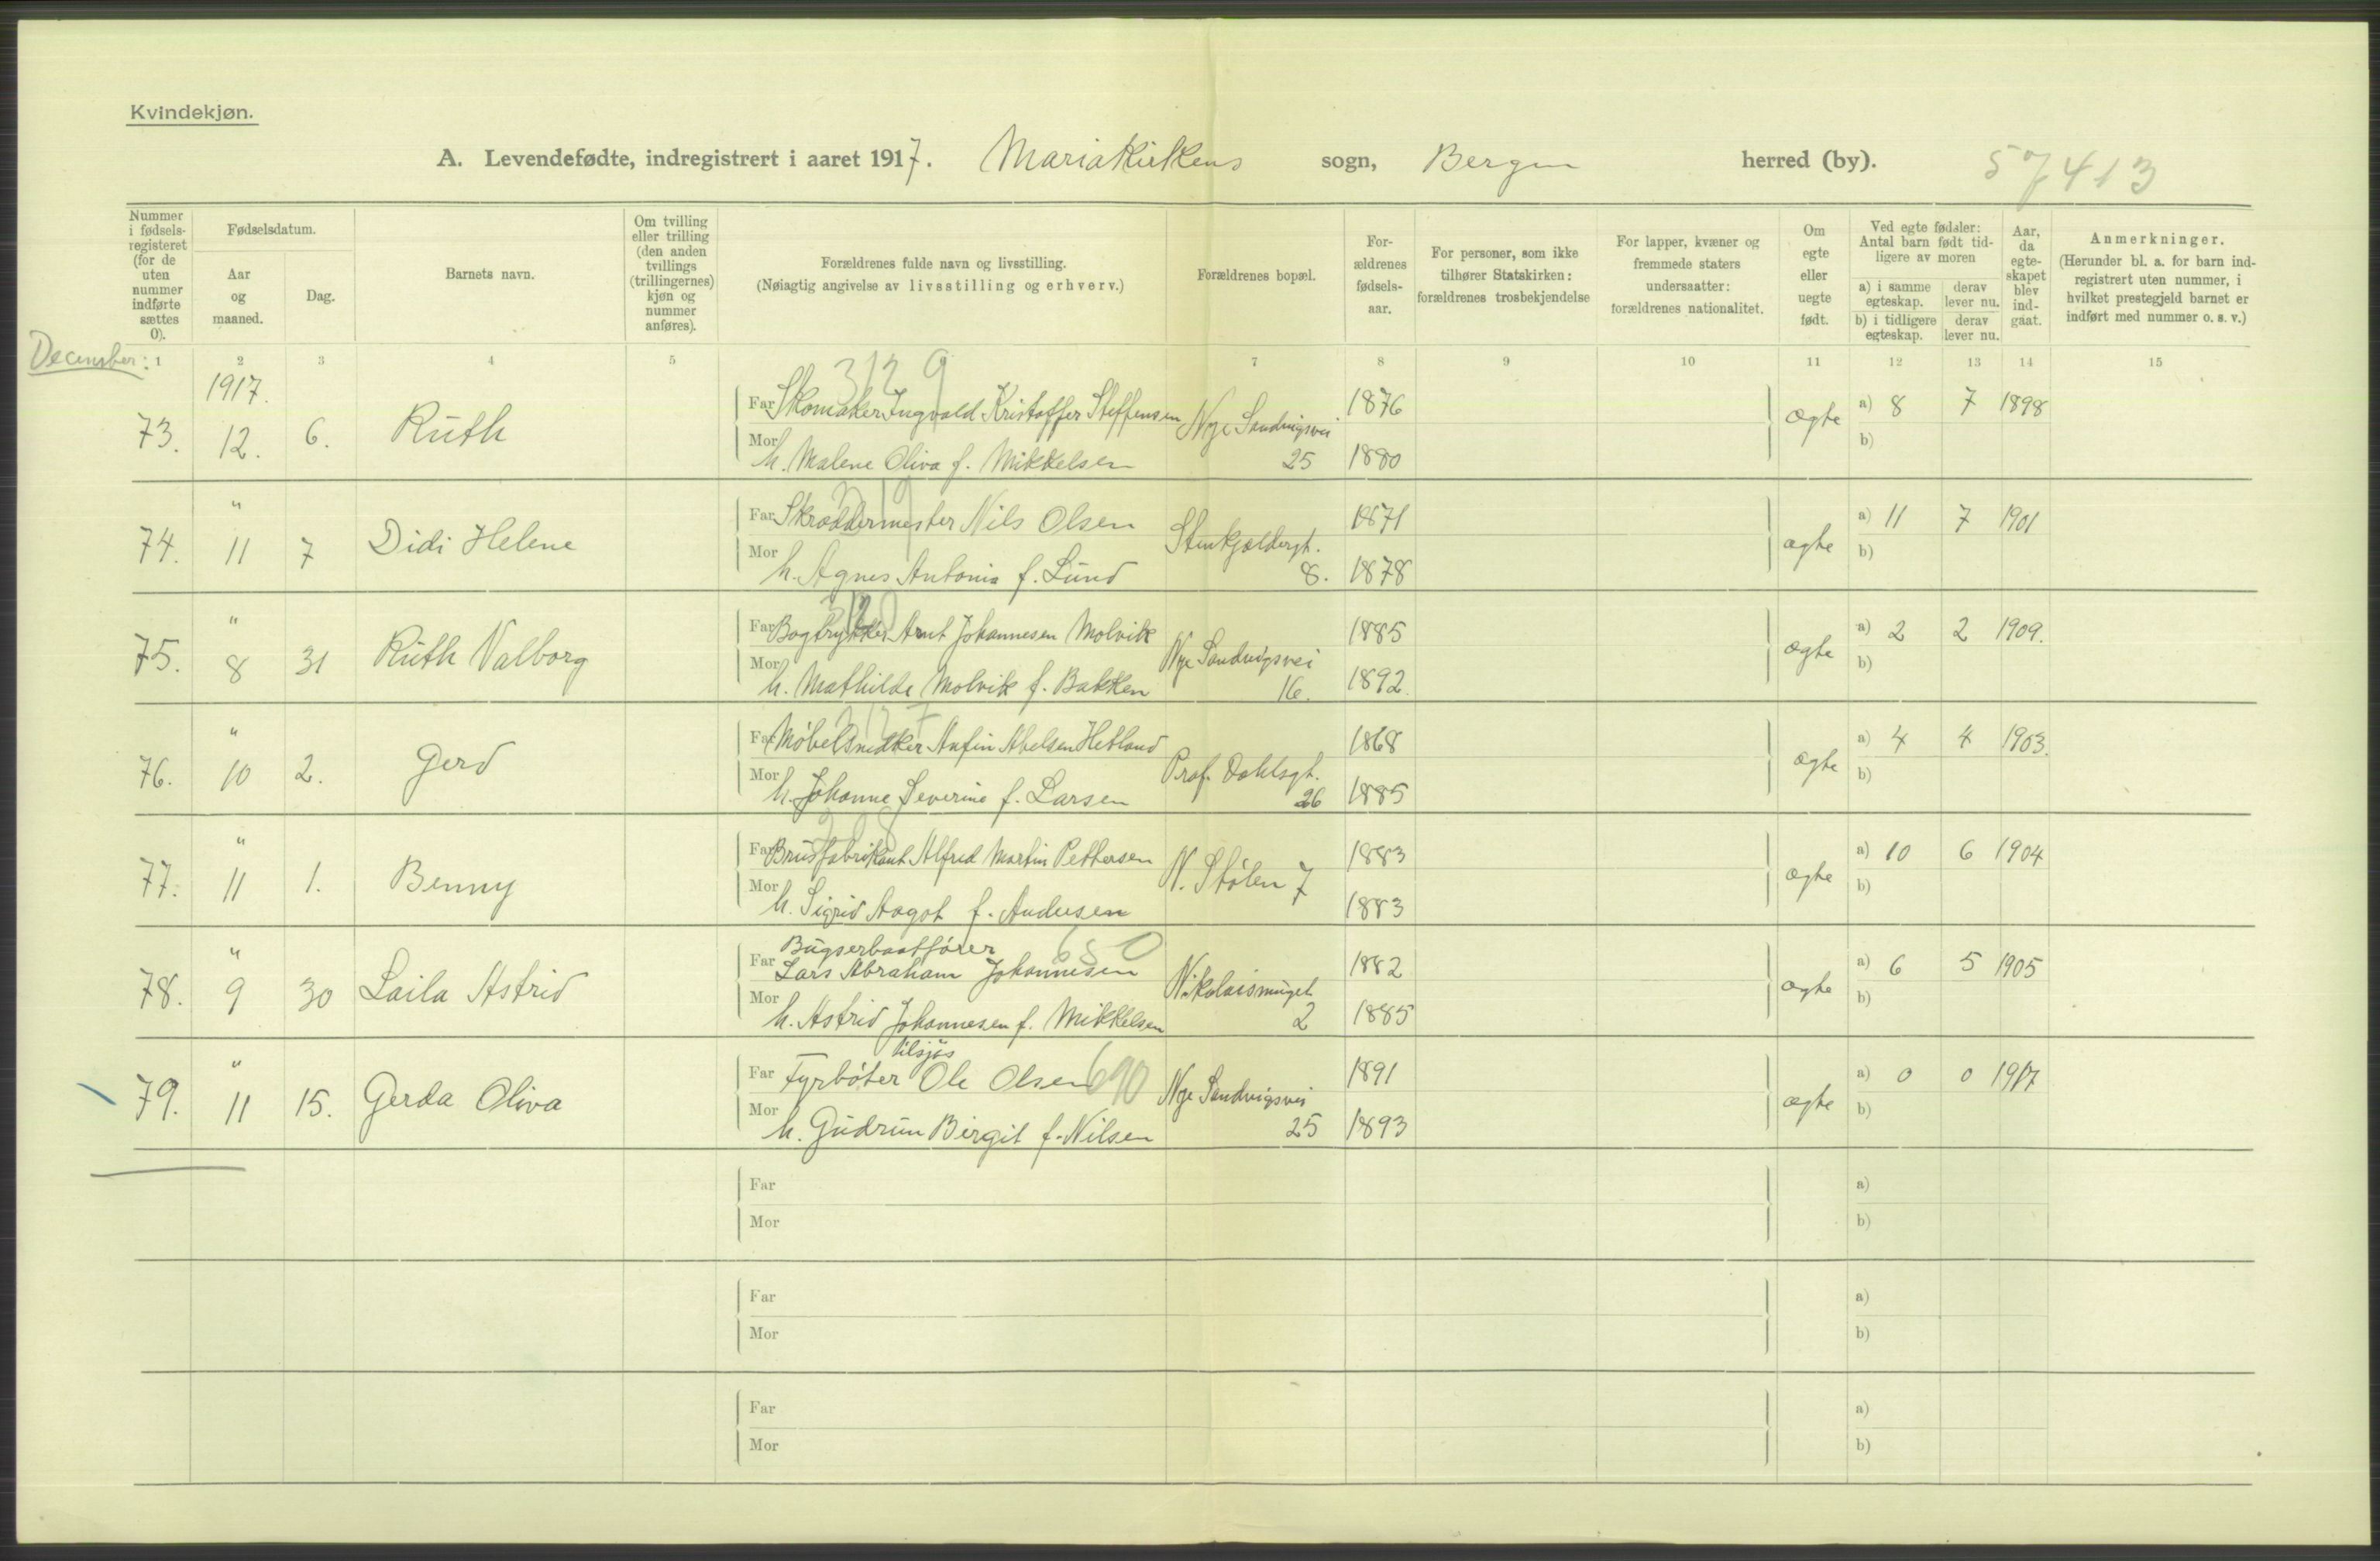 Kvindekjøn.
A. Levendefødte, indregistrert i aaret 1917. Mariakirkens sogn, Bergen herred (by). 57413
Nummer i fødsels-registeret (for de uten nummer indførte sættes 0).
Fødselsdatum.
Aar og maaned.
Dag.
Barnets navn.
Om tvilling eller trilling (den anden tvillings (trillingernes) kjøn og nummer anføres).
Forældrenes fulde navn og livsstilling.
(Nøiagtig angivelse av livsstilling og erhverv.)
Forældrenes bopæl.
For-ældrenes fødsels-aar.
For personer, som ikke tilhører Statskirken: forældrenes trosbekjendelse
For lapper, kvæner og fremmede staters undersaatter: forældrenes nationalitet.
Om egte eller uegte født.
Ved egte fødsler: Antal barn født tid-ligere av moren
a) i samme egteskap. derav lever nu.
b) i tidligere egteskap. derav lever nu.
Aar, da egte-skapet blev ind-gaat.
Anmerkninger.
(Herunder bl. a. for barn ind-registrert uten nummer, i hvilket prestegjeld barnet er indført med nummer o. s. v.)
December:
1 2 3 4 5 7 8 9 10 11 12 13 14 15
1917. 312 9
Far Skomaker Ingvald Kristoffer Steffensen Nye Sandvigsvei 1876 a) 8 7 1898
73. 12. 6. Ruth ægte
Mor h. Malene Oliva f. Mikkelsen 25 1880 b)
"
Far Skræddermester Nils Olsen Stenkjeldergt. 1871 a) 11 7 1901
74. 11 7 Didi Helene ægte
Mor h. Agnes Antonia f. Lund 8. 1878 b)
"
Far Bogtrykker Arnt Johannesen Molvik Nye Sandvigsvei 1885 a) 2 2 1909.
75. 8 31 Ruth Valborg ægte
Mor h. Mathilde Molvik f. Bakken 16. 1892. b)
"
Far Møbelsnedker Anfin Abelsen Hetland Prof. Dahlsgt. 1868 a) 4 4 1903.
76. 10 2. Gerd ægte
Mor h. Johanne Severine f. Larsen 26 1885 b)
"
Far Brusfabrikant Alfred Martin Pettersen N. Stølen 7 1883 a) 10 6 1904
77. 11 1. Benny ægte
Mor h. Sigrid Aagot f. Andersen 1883 b)
"
Bugserbaatfører 650
Far Lars Abraham Johannesen Nikolaismuget 1882 a) 6 5 1905
78. 9 30 Laila Astrid ægte
Mor h. Astrid Johannesen f. Mikkelsen 2 1885 b)
"
tilsjøs
Far Fyrbøter Ole Olsen 690 Nye Sandvigsvei 1891 a) 0 0 1917
79. 11 15. Gerda Oliva ægte
Mor h. Gudrun Birgit f. Nilsen 25 1893 b)
Far a)
Mor b)
Far a)
Mor b)
Far a)
Mor b)